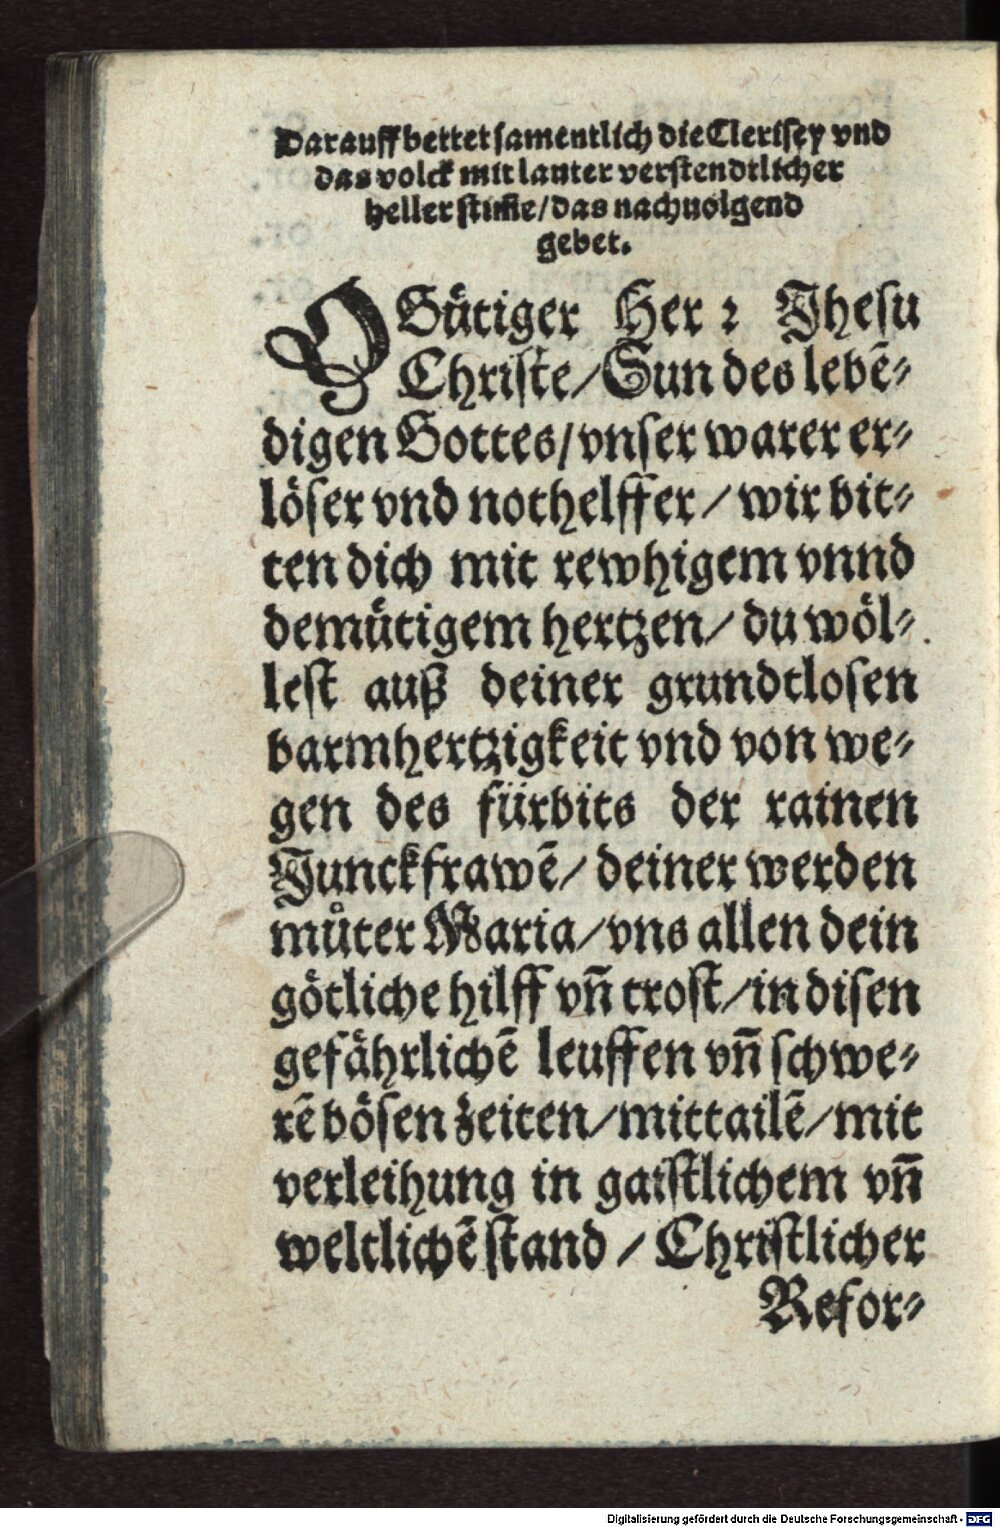 Darauff bettet samentlich die Clerisey vnd
das volck mit lauter verstendtlicher
heller stim̃e/das nachuolgend
gebet.
O Gütiger Her ꝛ Jhesu
Christe/Sun des lebē⸗
digen Gottes/vnser warer er⸗
löser vnd nothelffer/wir bit⸗
ten dich mit rewhigem vnnd
demütigem hertzen/du wöl⸗
lest auß deiner grundtlosen
barmhertzigkeit vnd von we⸗
gen des fürbits der rainen
Junckfrawē/deiner werden
můter Maria/vns allen dein
götliche hilff vñ trost/in disen
gefährlichē leuffen vñ schwe⸗
rē bösen zeiten/mittailē/mit
verleihung in gaistlichem vñ
weltlichē stand/Christlicher
Refor⸗
Digitalisierung gefördert durch die Deutsche Forschungsgemeinschaft - DFG